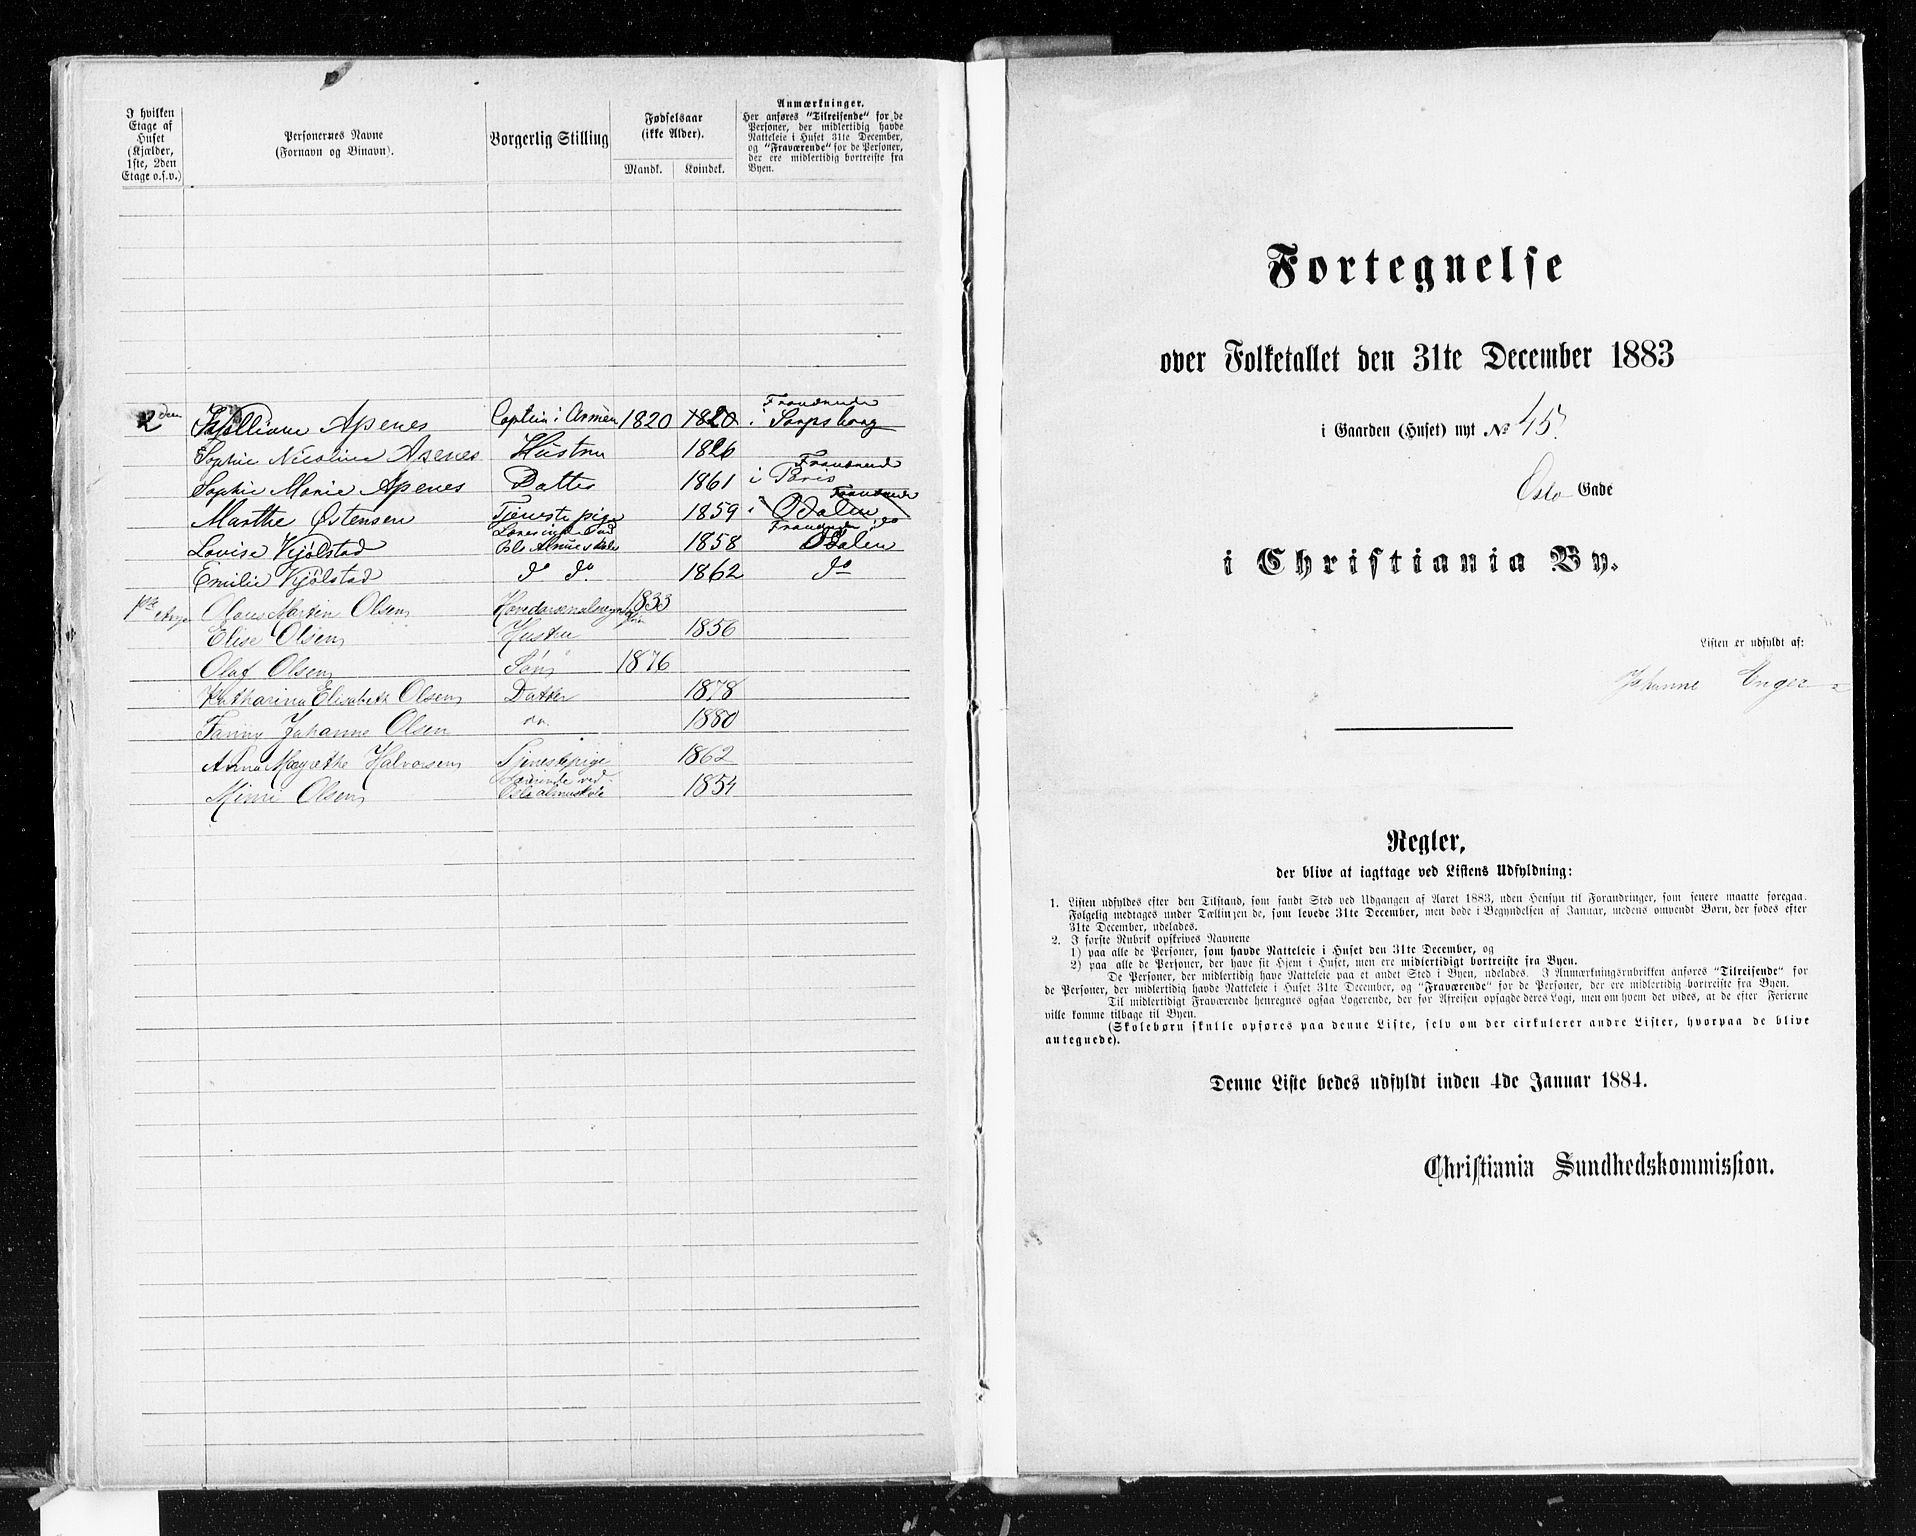 I hvilken
Etage af
Huset
(Kjælder,
1ste, 2den
Etage o.s.v.)
Personernes Navne
(Fornavn og Binavn).
Borgerlig Stilling
Fødselsaar
(ikke Alder).
Mandk. Kvindek.
Anmærkninger.
Her anføres "Tilreisende" for de
Personer, der midlertidig havde
Natteleie i Huset 31te December,
og "Fraværende" for de Personer,
der ere midlertidig bortreiste fra
Byen.
2den Apenes Captein i Armeen 1820 1820 Fraværende i Sarpsborg
Sophie Nicoline Apenes Hustru 1826
Sophie Marie Apenes Datter 1861 Fraværende i Paris
Marthe Østensen Tjenestepige 1859 Fraværende i Odalen
Lovise Kjølstad Lærerinde ved Oslo Almueskole 1858 Fraværende i Odalen
Emilie Kjølstad do do. 1862 do
1ste Etage Martin Olsen 1833
Elise Olsen Hustru 1856
Olaf Olsen Søn 1876
Katharina Elisabeth Olsen Datter 1878
Fanny Johanne Olsen do. 1880
Anna Margrethe Halvorsen Tjenestepige 1862
Mimi Olsen Lærerinde ved Oslo almueskole 1854
Fortegnelse
over Folketallet den 31te December 1883
i Gaarden (Huset) nyt No 45.
Oslo Gade
i Christiania By.
Listen er udfyldt af:
Johanne Enger
Regler,
der blive at iagttage ved Listens Udfyldning:
1. Listen udfyldes efter den Tilstand, som fandt Sted ved Udgangen af Aaret 1883, uden Hensyn til Forandringer, som senere maatte foregaa.
Følgelig medtages under Tællingen de, som levede 31te December, men døde i Begyndelsen af Januar, medens omvendt Børn, der fødes efter
31te December, udelades.
2. I første Rubrik opskrives Navnene
1) paa alle de Personer, som havde Natteleie i Huset den 31te December, og
2) paa alle de Personer, der have sit Hjem i Huset, men ere midlertidigt bortreiste fra Byen.
De Personer, der midlertidig have Natteleie paa et andet Sted i Byen, udelades. I Anmærkningsrubrikken anføres "Tilreisende" for
de Personer, der midlertidig havde Natteleie i Huset 31te December, og "Fraværende" for de Personer, der ere midlertidig bortreiste fra Byen.
Til midlertidigt Fraværende henregnes ogsaa Logerende, der før Afreisen opsagde deres Logi, men om hvem det vides, at de efter Ferierne
ville komme tilbage til Byen.
(Skolebørn skulle opføres paa denne Liste, selv om der cirkulerer andre Lister, hvorpaa de blive
antegnede).
Denne Liste bedes udfyldt inden 4de Januar 1884.
Christiania Sundhedskommission.